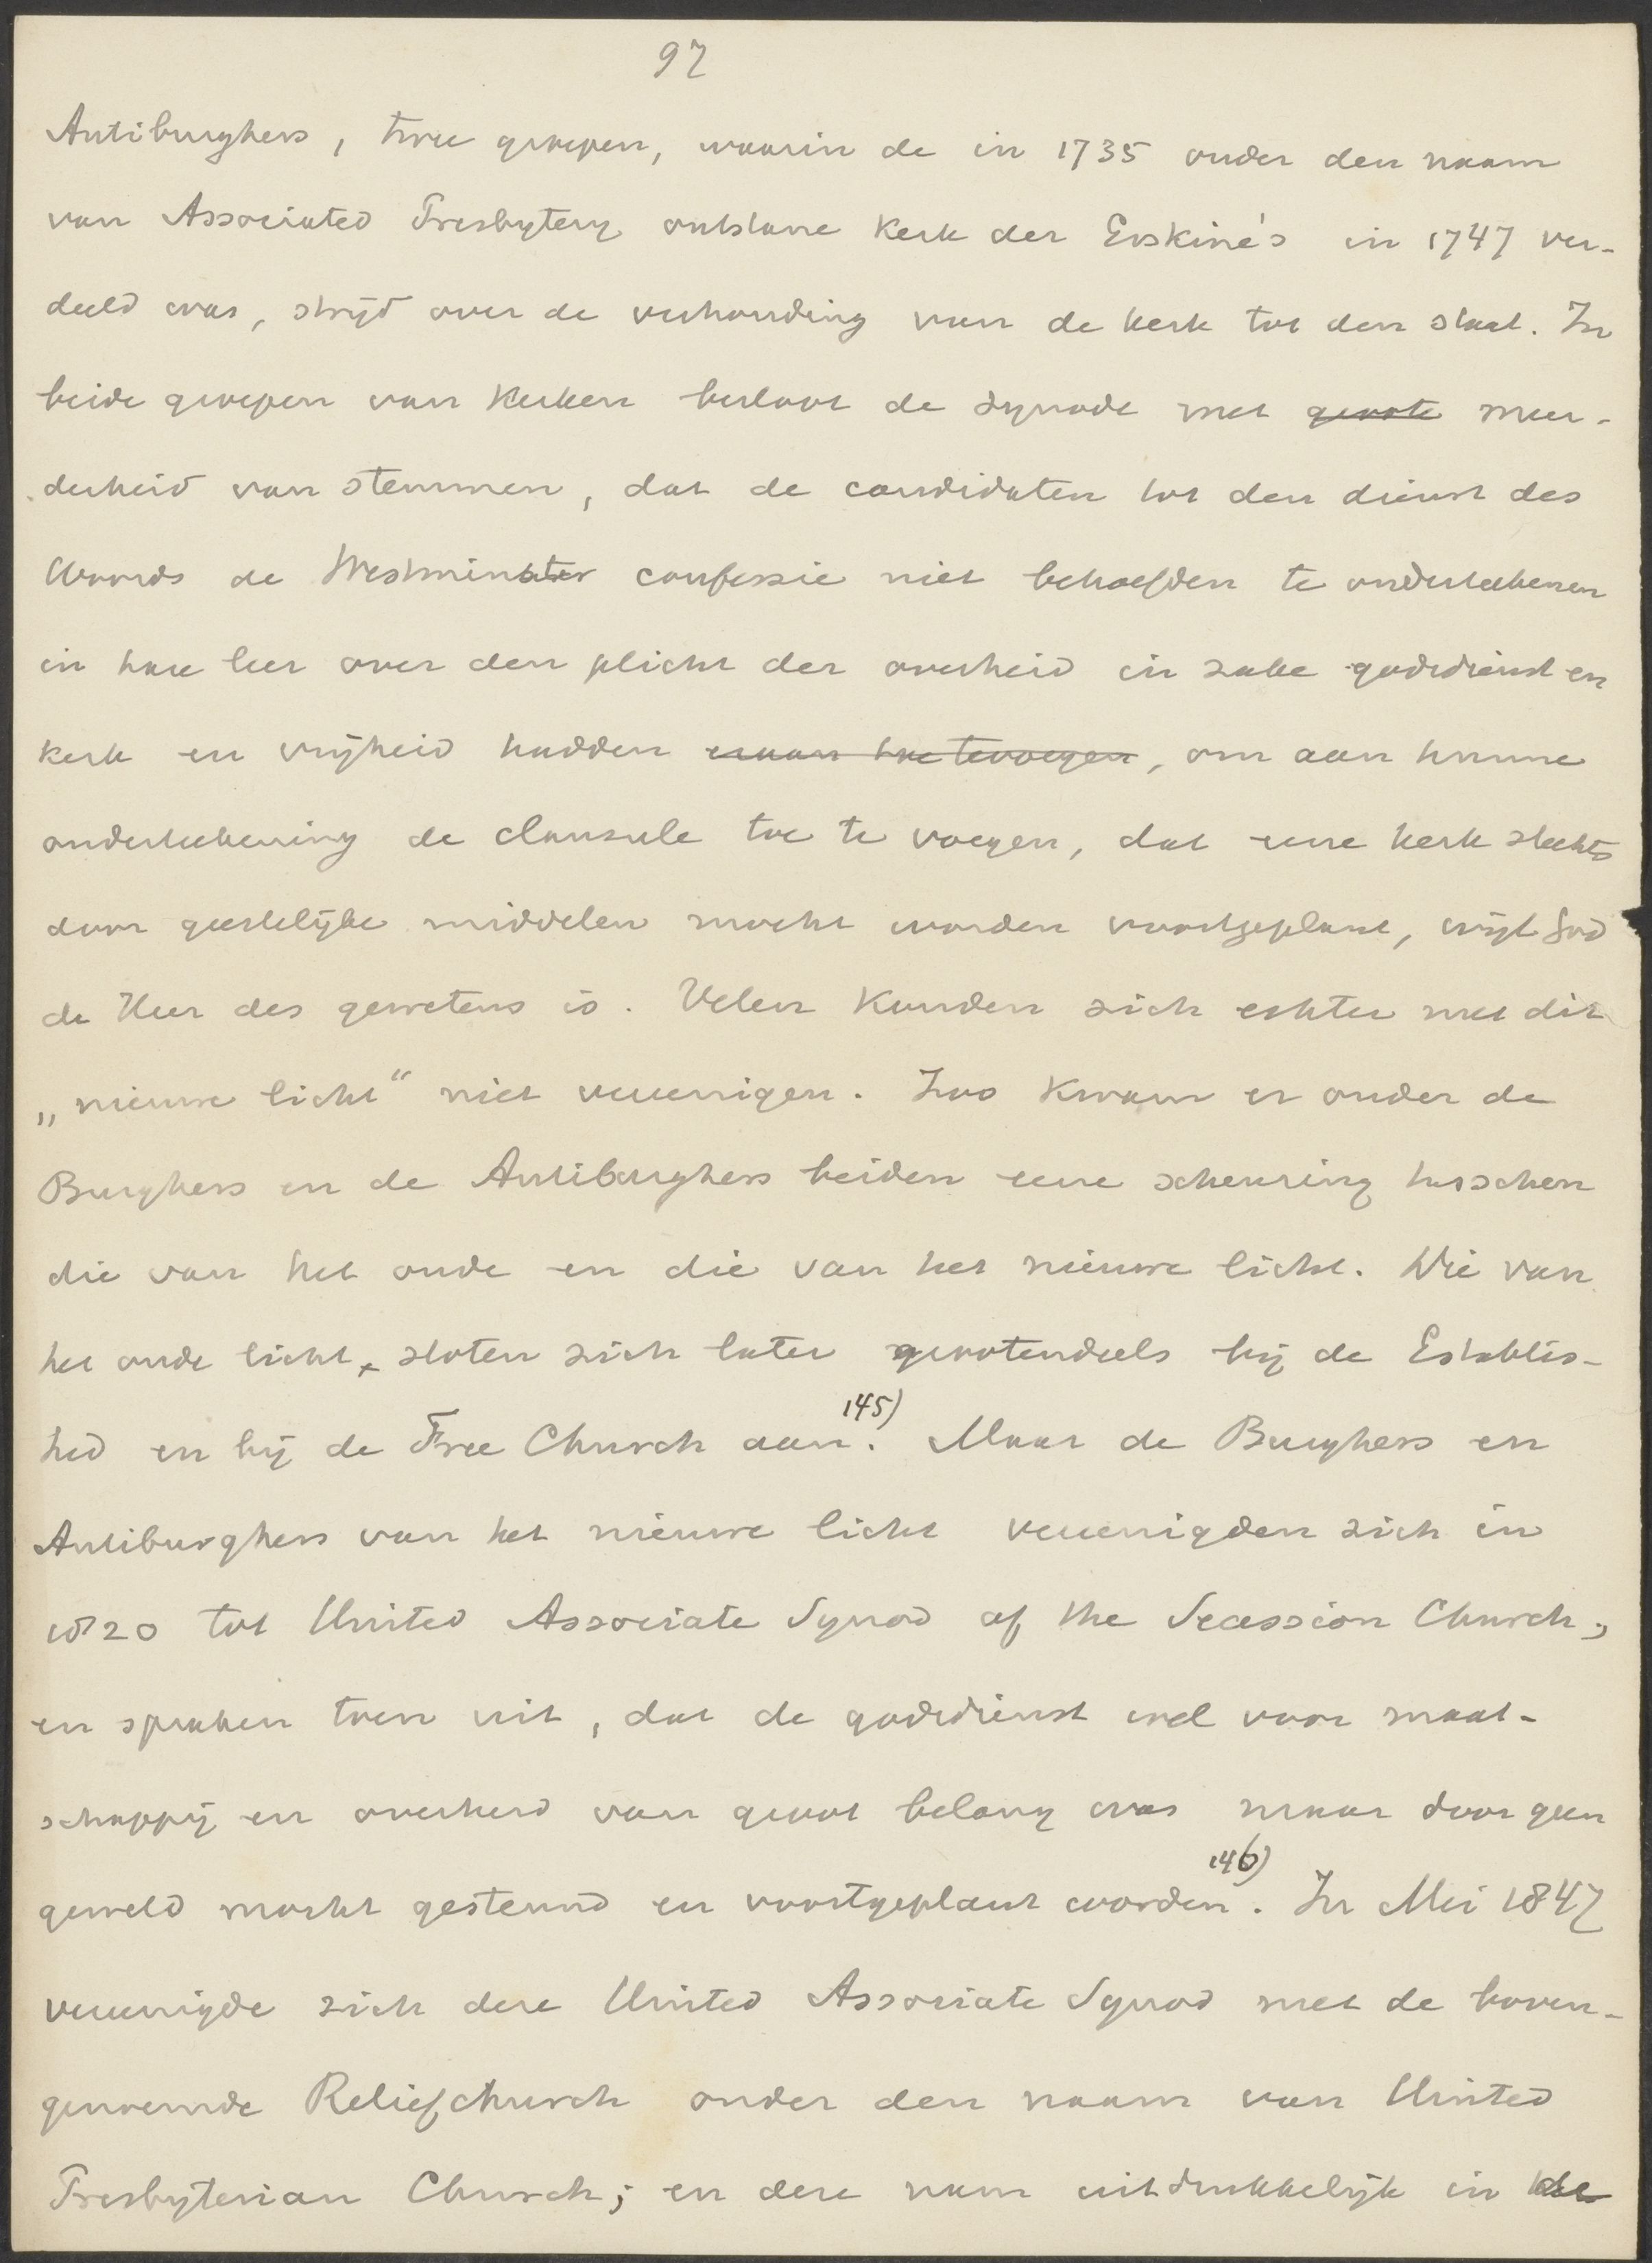 97
Antiburghers, twee groepen, waarin de in 1735 onder den naam
van Associated Presbytery ontstane Kerk der Erskine's in 1747 ver-
deeld was, strijd over de verhouding van de kerk tot den staat. In
beide groepen van Kerken besloot de synode met groote meer-
derheid van stemmen, dat de candidaten tot den dienst des
Woords de Westminster confessie niet behoefden te onderteekenen
in hare leer over den plicht der overheid in zake godsdienst en
kerk en vrijheid hadden eraan toetevoegen, om aan hunne
onderteekening de clausule toe te voegen, dat eene kerk slechts
door geestelijke middelen mocht worden voortgeplant, wijl God
de Heer des gewetens is. Velen konden zich echter met dit
„nieuwe licht“ niet vereenigen. Zoo kwam er onder de
Burghers en de Antiburghers beiden eene scheuring tusschen
die van het oude en die van het nieuwe licht. Die van
het oude licht, sloten zich later grootendeels bij de Establis-
hed en bij de Free Church aan.145) Maar de Burghers en
Antiburghers van het nieuwe licht vereenigden zich in
1820 tot United Associate Synod of the Secession Church,
en spraken toen uit, dat de godsdienst wel voor maat-
schappij en overheid van groot belang was maar door geen
geweld mocht gesteund en voortgeplant worden146). In Mei 1847
vereenigde zich deze United Associate Synod met de boven-
genoemde Reliefchurch onder den naam van United
Presbyterian Church; en deze nam uitdrukkelijk in de